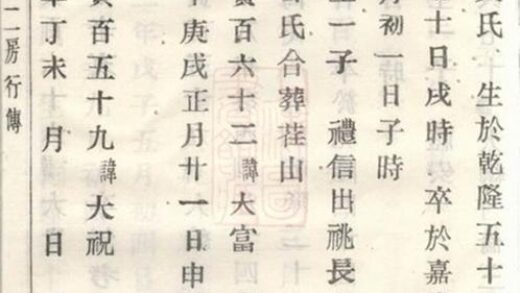 氏 生於乾隆五十
十日戌時 卒於嘉
初一日子時
一子 禮信出祧長
氏合葬茬山
百六十二 諱大富
庚戌正月廿一日申
百五十九 諱大祝
丁未十月 日
二房行傳